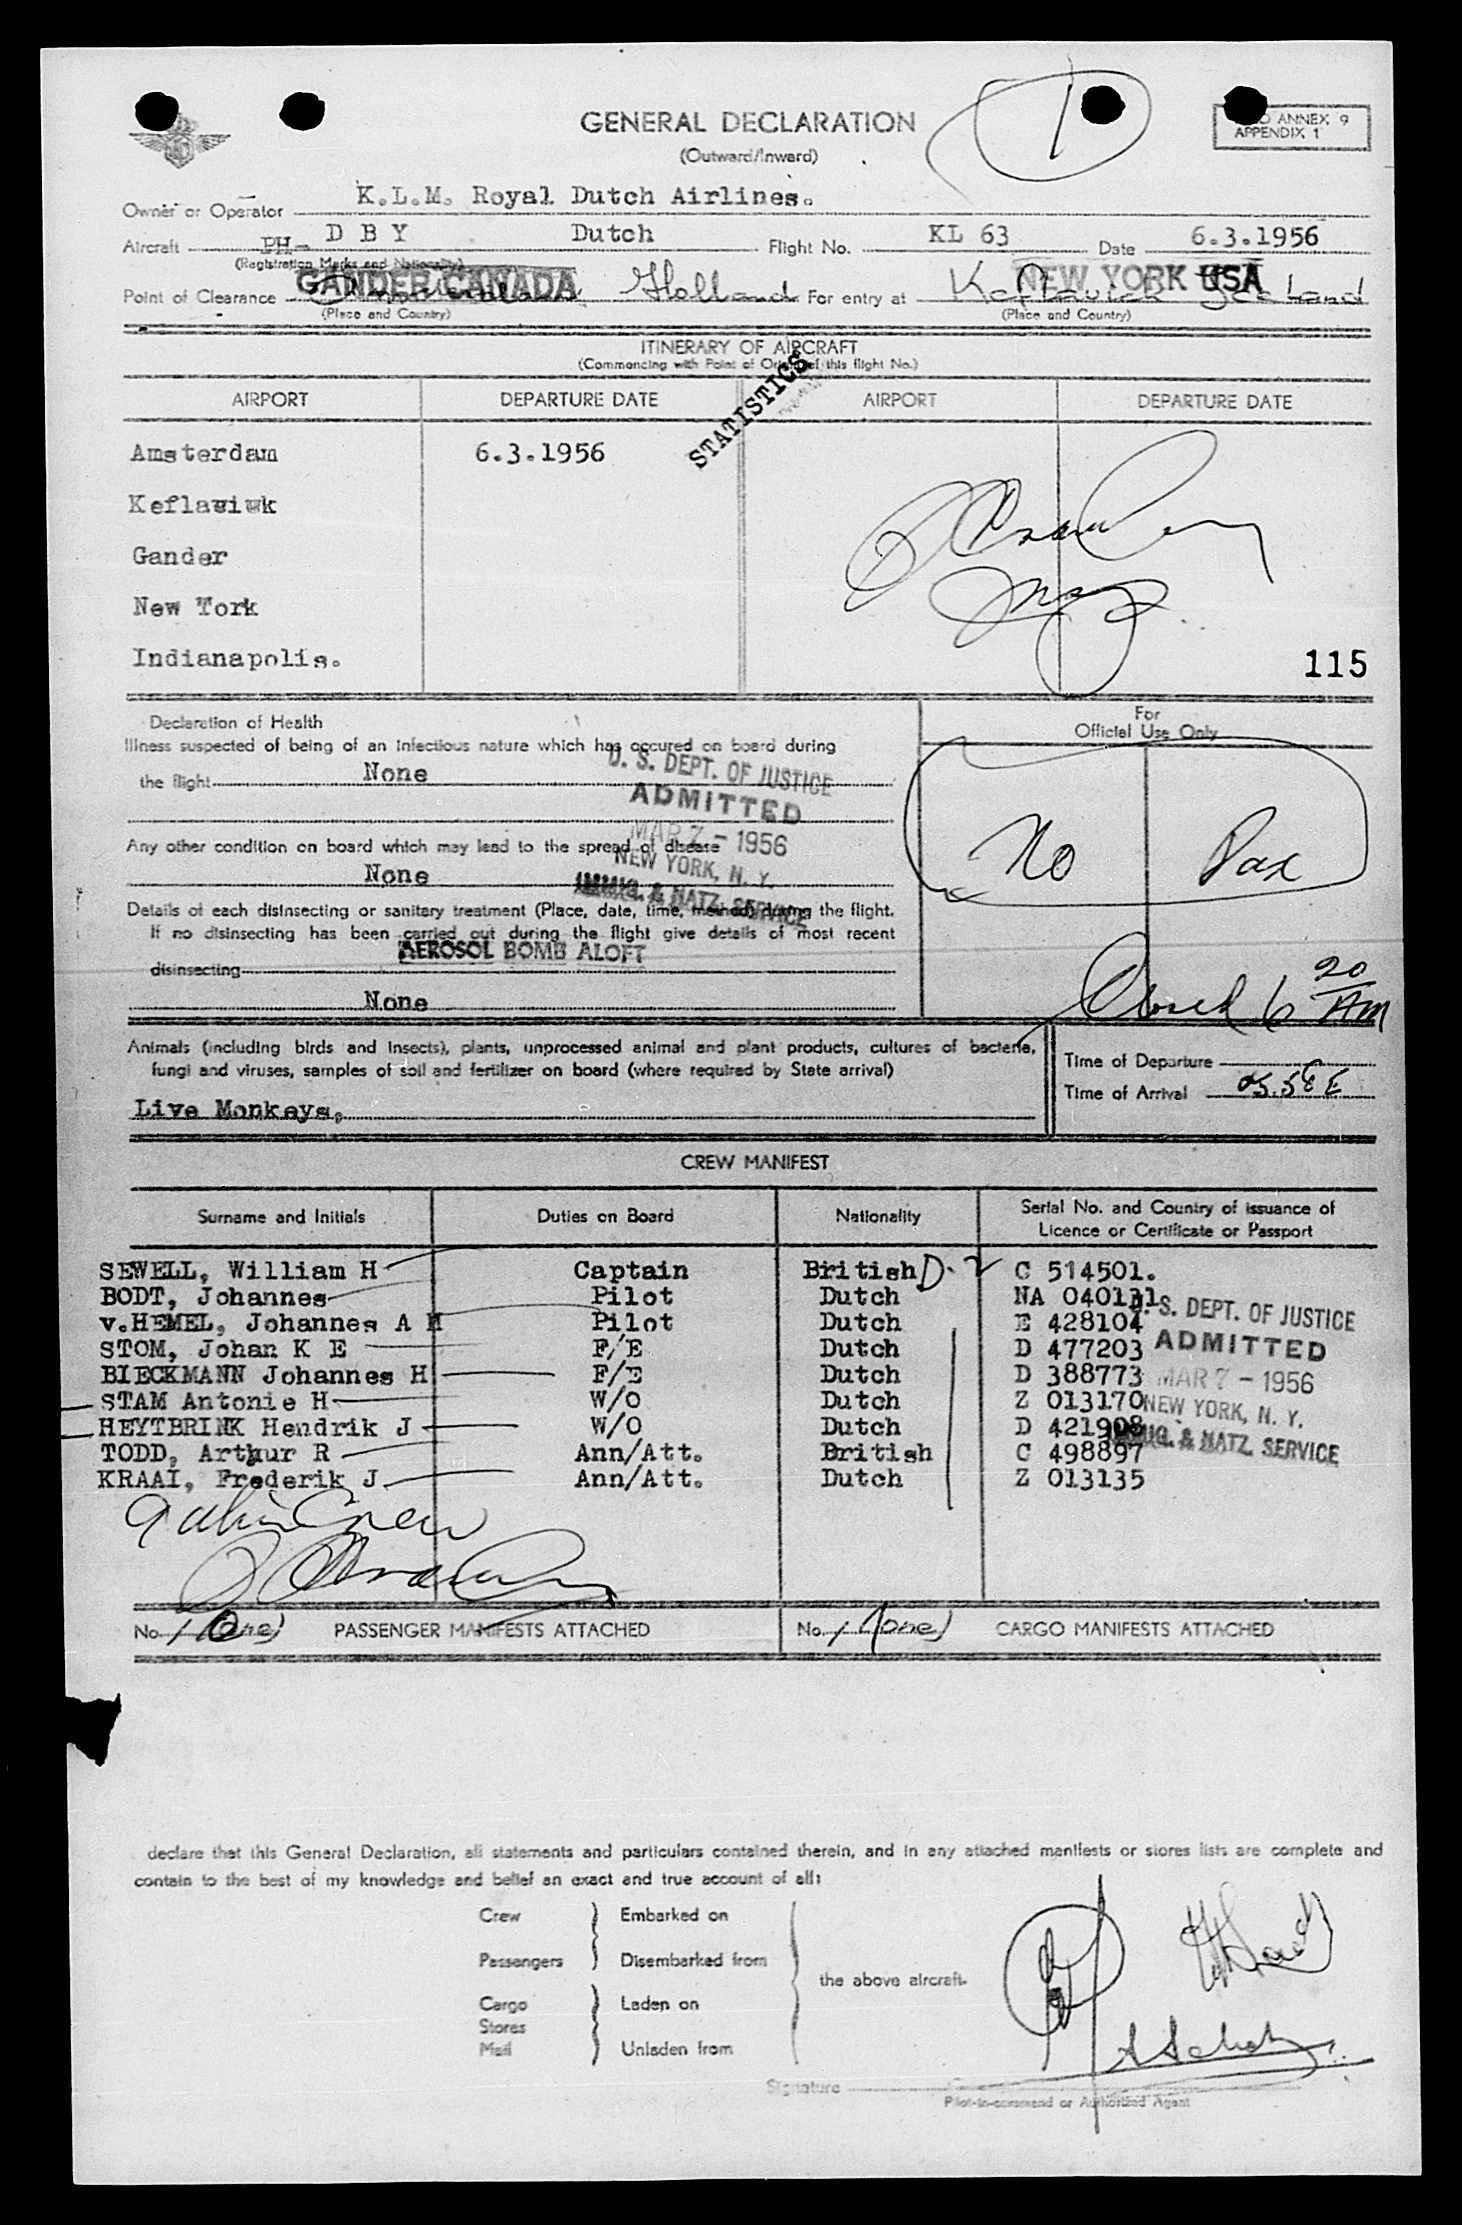 GENERAL DECLARATION
(Outward/Inward)
1
ANNEX 9
APPENDIX 1
Owner or Operator K.L.M. Royal Dutch Airlines.
Aircraft PH- D B Y Dutch Flight No. KL 63 Date 6.3.1956
(Registration Marks and Nationality)
GANDER CANADA NEW YORK USA
Point of Clearance Holland For entry at Keflavick Iceland
(Place and Country) (Place and Country)
ITINERARY OF AIRCRAFT
(Commencing with Point of Origin of this flight No.)
STATISTICS
AIRPORT DEPARTURE DATE AIRPORT DEPARTURE DATE
Amsterdam 6.3.1956
Keflawiwk
Gander
New York
Indianapolis.
115
Declaration of Health
Illness suspected of being of an infectious nature which has occured on board during
the flight None
Any other condition on board which may lead to the spread of disease
None
Details of each disinsecting or sanitary treatment (Place, date, time, method) during the flight.
If no disinsecting has been carried out during the flight give details of most recent
AEROSOL BOMB ALOFT
disinsecting
None
U. S. DEPT. OF JUSTICE
ADMITTED
MAR 7 - 1956
NEW YORK, N. Y.
IMMIG. & NATZ. SERVICE
For
Official Use Only
No Pax
Closed 6 20 AM
Animals (including birds and insects), plants, unprocessed animal and plant products, cultures of bacteria,
fungi and viruses, samples of soil and fertilizer on board (where required by State arrival)
Live Monkeys,
Time of Departure
Time of Arrival 05.58 E
CREW MANIFEST
Surname and Initials Duties on Board Nationality Serial No. and Country of issuance of
Licence or Certificate or Passport
SEWELL, William H Captain British D-2 C 514501.
BODT, Johannes Pilot Dutch NA 040131
v.HEMEL, Johannes A M Pilot Dutch E 428104
STOM, Johan K E F/E Dutch D 477203
BIECKMANN Johannes H F/E Dutch D 388773
STAM Antonie H W/O Dutch Z 013170
HEYTBRINK Hendrik J W/O Dutch D 421908
TODD, Arthur R Ann/Att. British C 498897
KRAAI, Frederik J Ann/Att. Dutch Z 013135
U. S. DEPT. OF JUSTICE
ADMITTED
MAR 7 - 1956
NEW YORK, N. Y.
IMMIG. & NATZ. SERVICE
Crew
No. 1 (One) PASSENGER MANIFESTS ATTACHED No. 1 (one) CARGO MANIFESTS ATTACHED
declare that this General Declaration, all statements and particulars contained therein, and in any attached manifests or stores lists are complete and
contain to the best of my knowledge and belief an exact and true account of all:
Crew Embarked on
Passengers Disembarked from
the above aircraft.
Cargo Laden on
Stores
Mail Unladen from
Signature
Pilot-in-command or Authorized Agent